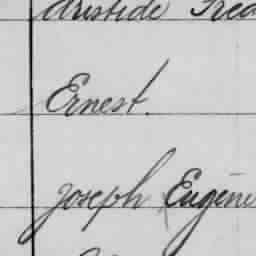 Aristide Fred
Ernest.
Joseph Eugène